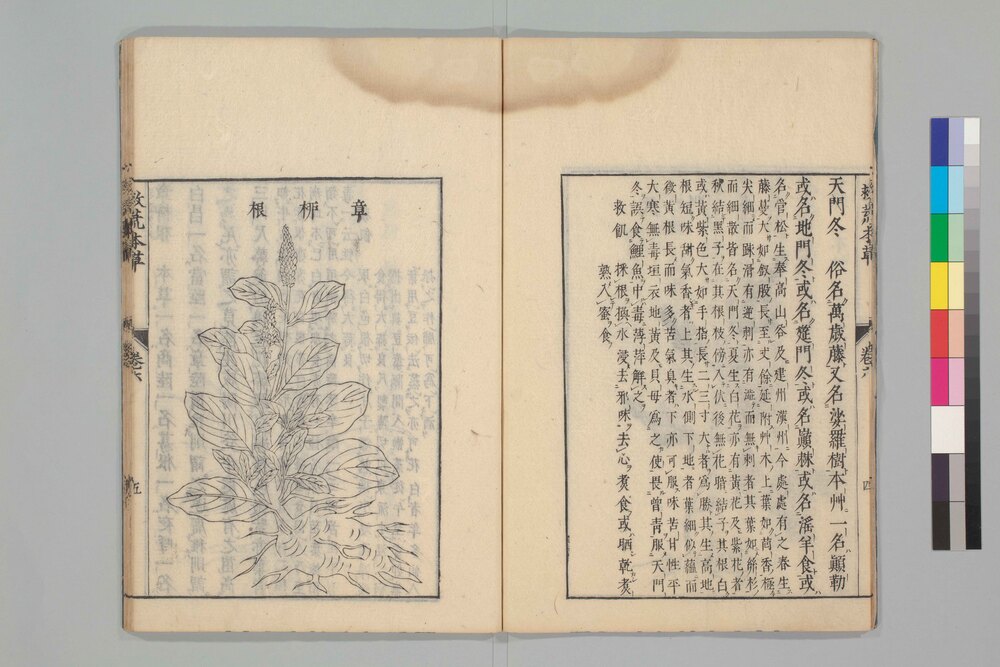 天門冬 俗名萬歲藤又名娑羅樹本艸一名顚勒
或名地門冬或名筵門冬或名巓棘或名淫羊食或
名管松生奉高山谷及建州漢州今處處有之春生
藤蔓大如釵股長至丈餘延附艸木上葉如茴香極
尖細而踈滑有逆刺亦有澁而無刺者其葉如絲杉
而細散皆名天門冬夏生白花亦有黃花及紫花者
秋結黑子在其根枝傍入伏後無花暗結子其根白
或黃紫色大如手指長二三寸大者爲勝其生高地
根短味甜氣香者上其生水側下地者葉細似蘊而
微黃根長而味多苦氣臭者下亦可服味苦甘性平
大寒無毒垣衣地黃及貝母爲之使畏曾青服天門
冬誤食鯉魚中毒萍解之
救飢 採根換水浸去邪味去心煮食或晒乾煮
熟入蜜食
四
章柳根
救荒本草
卷六
五